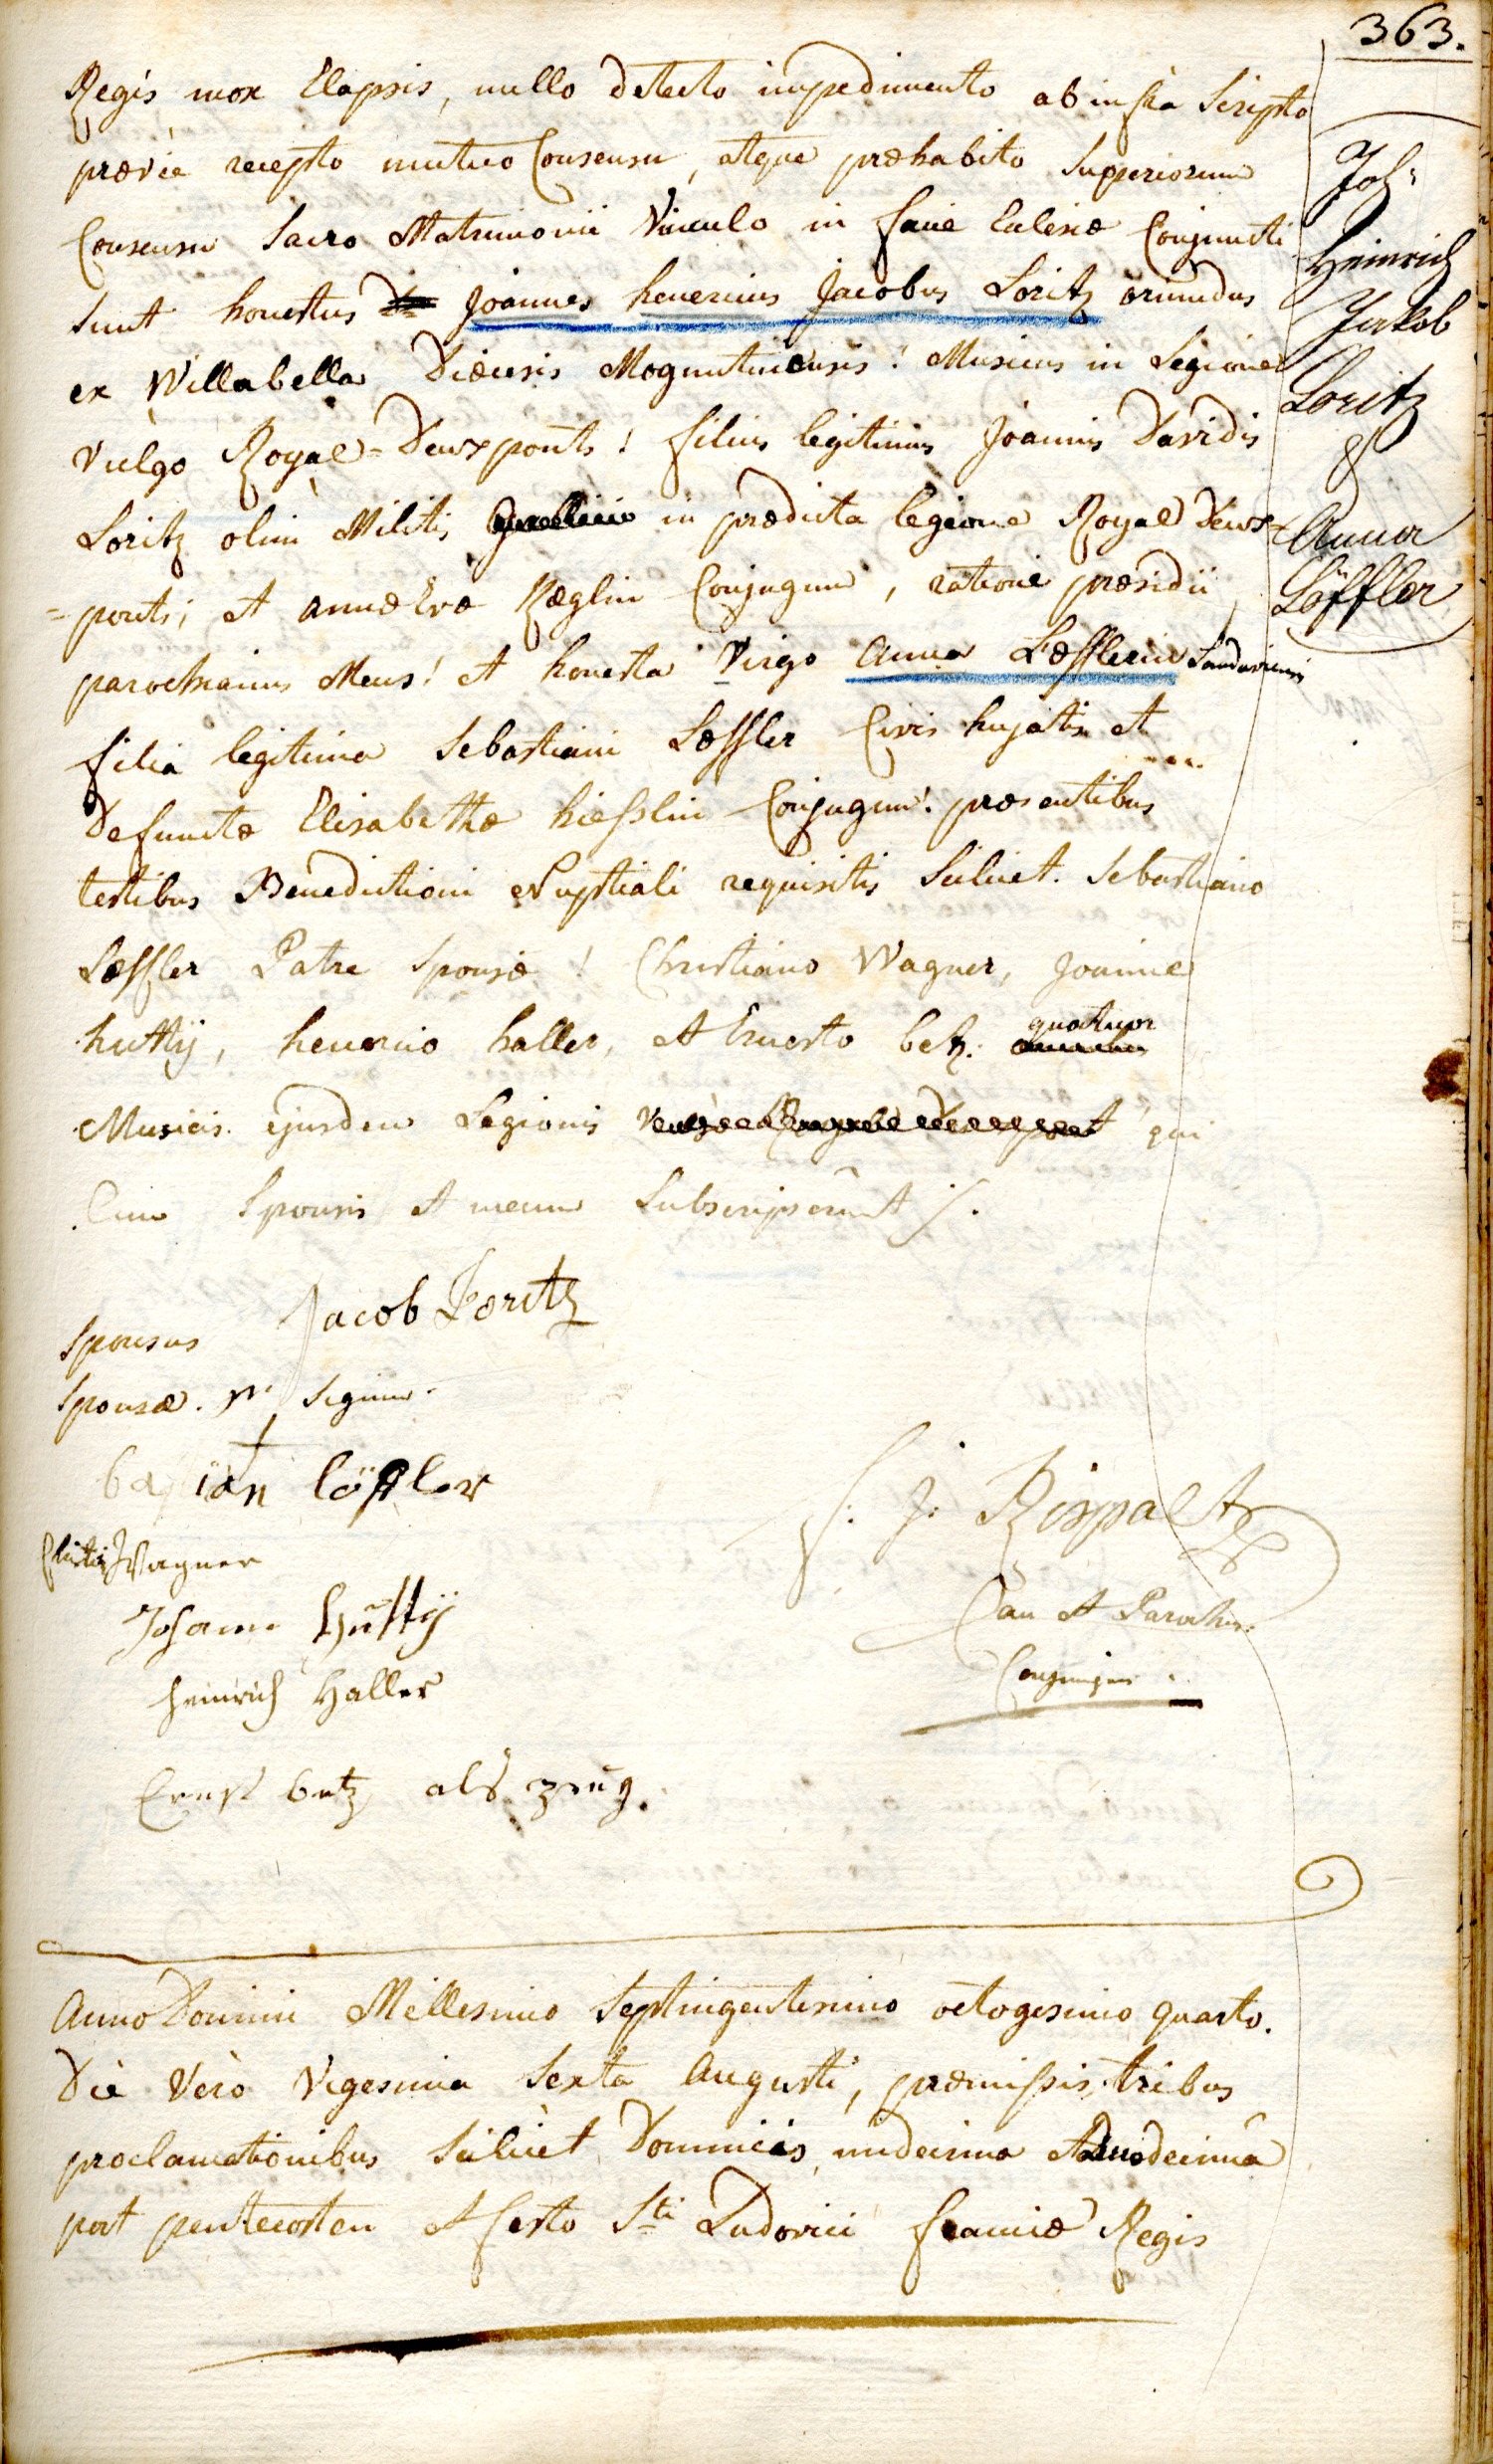 363.
Regis mox Elapsis, nullo detecto impedimento ab infra Scripto
prævie recepto mutuo Consensu, atque præhabito Superiorum
Consensu Sacro Matrimonii Vinculo in facie Eclesiæ Conjuncti
sunt honestus Joannes henericus Jacobus Loritz oriundus
ex Willabella Diœcesis Moguntinensis! Musicus in Legione
Vulgo Royal=Deuxponts! filius legitimus Joannis Davidis
Loritz olim Militis in prædicta legione Royal Deux=
=ponts; et annæ Evæ Kæglin Conjugum, ratione præsidii
parochianus Meus! et honesta Virgo Anna Læfflerin Landaviensis
filia legitima Sebastiani Læffler Civis hujatis et
Defunctæ Elisabethæ hiesslin Conjugum! præsentibus
testibus Benedictioni Nuptiali requisitis Scilicet. Sebastiano
Læffler Patre Sponsæ! Christiano Wagner, Joanne
huttÿ, henerico haller, et Ernesto betz. quatuor
Musicis ejusdem Legionis qui
Cum Sponsis et mecum Subscripserunt /.
Joh:
Heinrich
Jakob
Loritz
&
Anna
Löffler
Jacob Loritz
Sponsus
Sponsæ. Signum
+
bastian löffler
Christian Wagner
Johann Huttÿ
Heinrich Haller
Ernst betz als zeug.
F. J. Rispalt
Can et Parochus
Conjungens
Anno Domini Millesimo Septingentesimo octogesimo quarto.
Die Vero Vigesima Sexta Augusti, præmissis tribus
proclamationibus Scilicet Dominicis undecima et Duodecima
post pentecosten et festo Sti Ludovici franciæ Regis